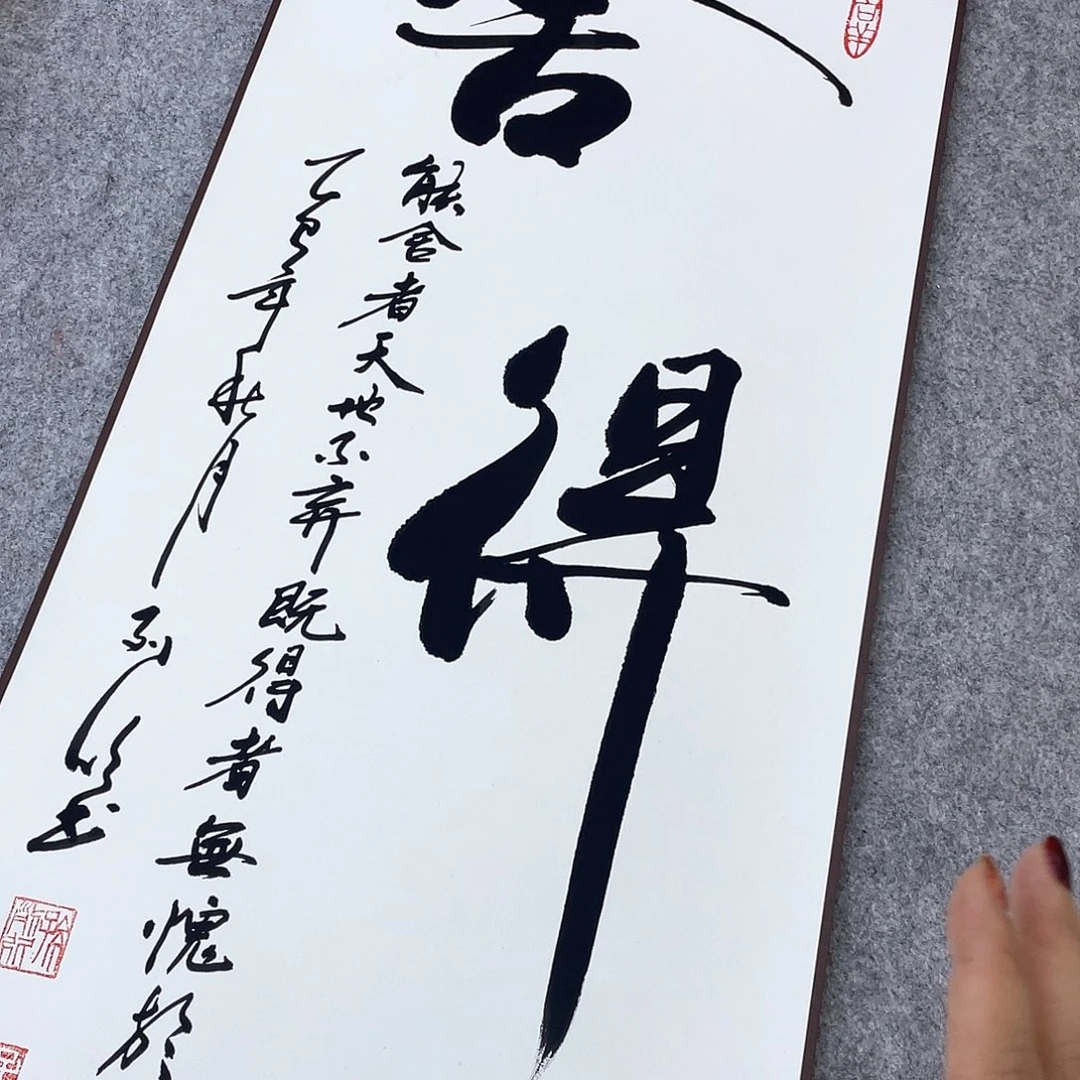 舍
得
能舍者天地不弃既得者無愧於
乙巳年秋月
书